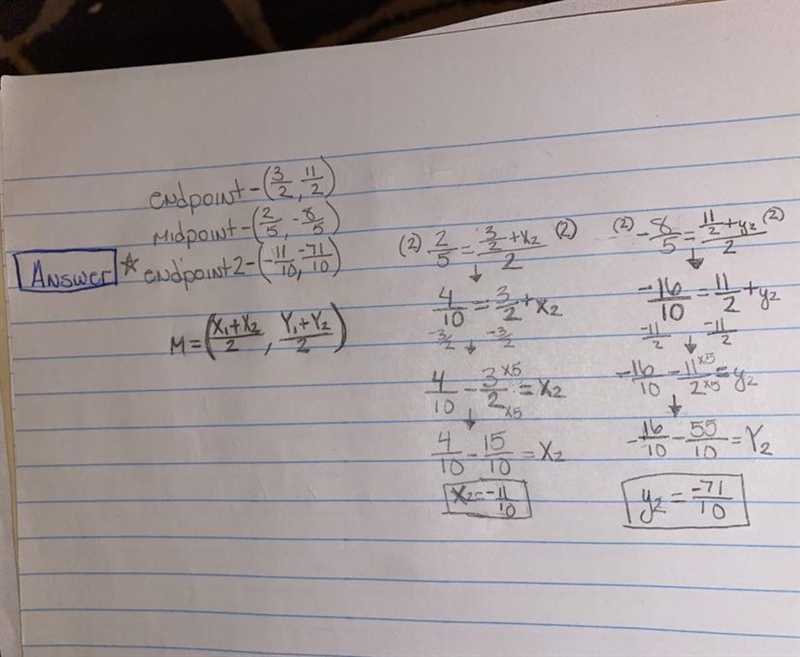 endpoint-(3/2, 11/2)
Midpoint-(2/5, -8/5)
Answer ☆ endpoint2-(-11/10, -71/10)
M=(X₁+X₂/2, Y₁+Y₂/2)
(2) 2/5 = 3/2+X₂/2 (2)
↓
4/10 = 3/2 + X₂
-3/2 ↓ -3/2
4/10 - 3/2 x5/x5 = X₂
↓
4/10 - 15/10 = X₂
X₂ = -11/10
(2) -8/5 = 11/2+y₂/2 (2)
↓
-16/10 = 11/2 + y₂
-11/2 ↓ -11/2
-16/10 - 11/2 x5/x5 = y₂
↓
-16/10 - 55/10 = Y₂
y₂ = -71/10